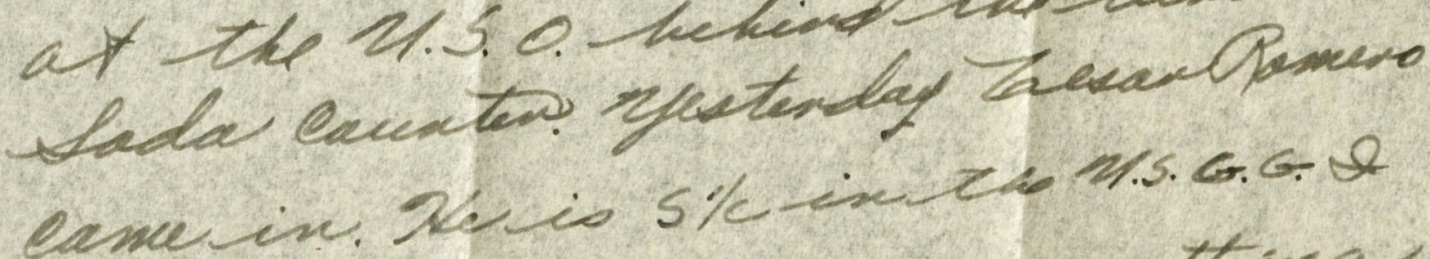 at the U.S.O. behind the
Soda Counter. Yesterday Caesar Romero
came in. He is S 1/c in the U.S. G. G. I